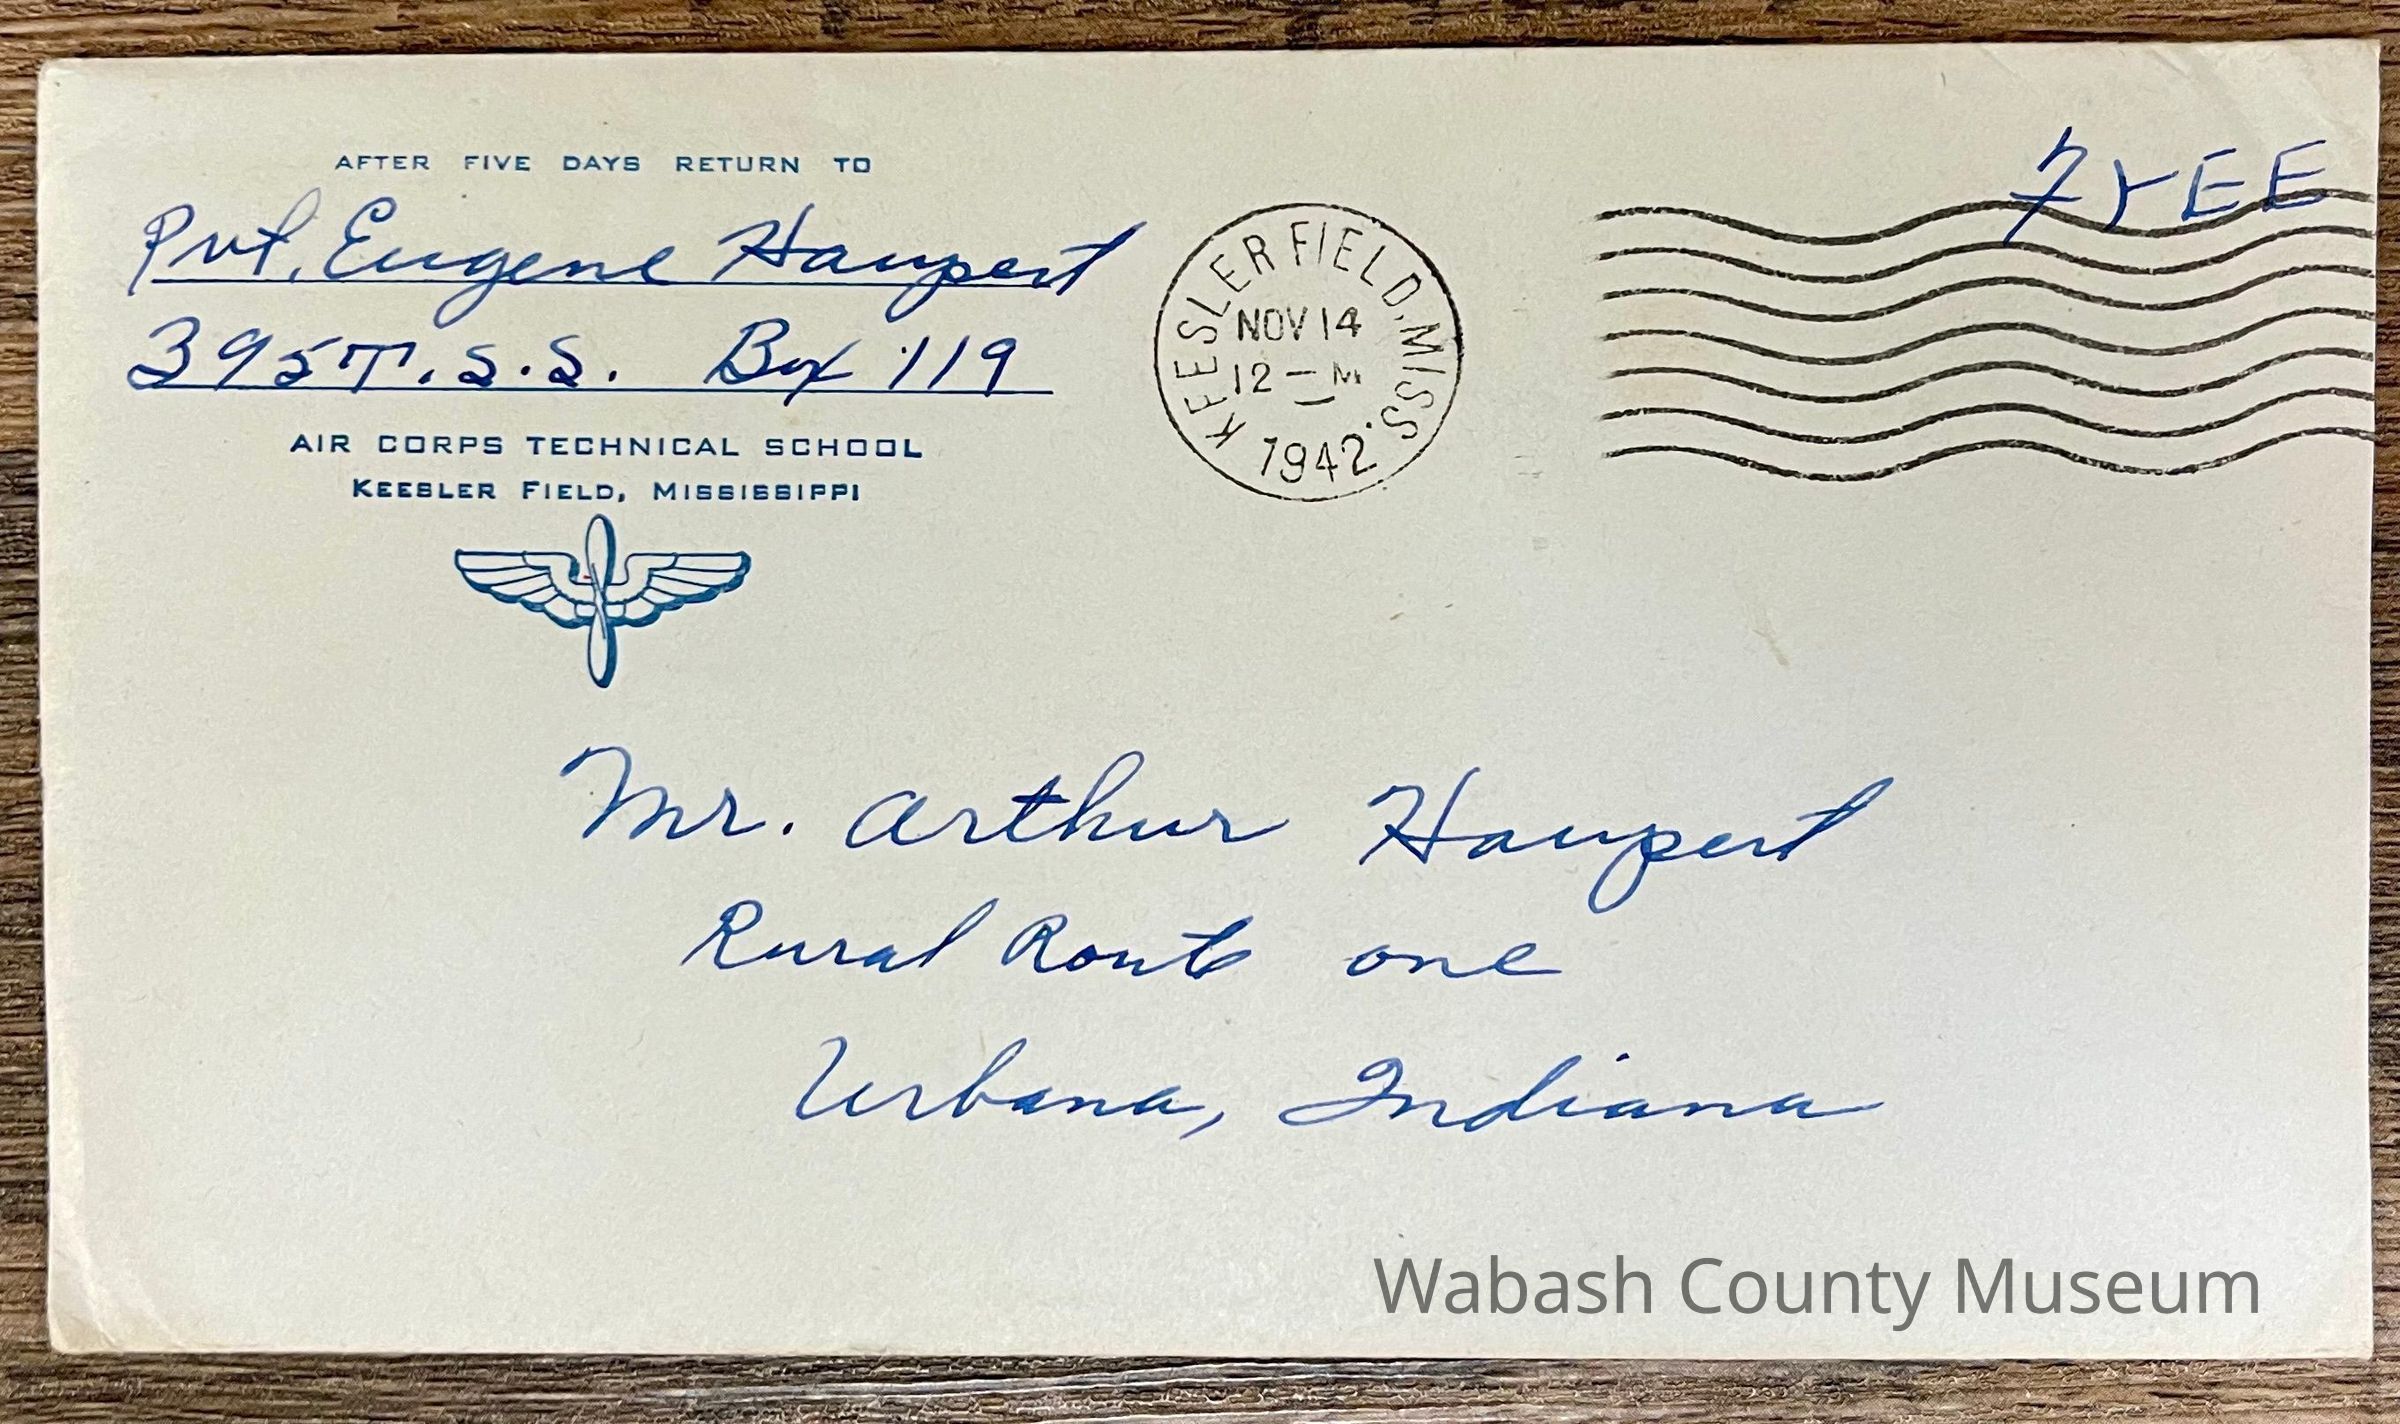 AFTER FIVE DAYS RETURN TO
Pvt. Eugene Haupert
395 T.S.S. Box 119
AIR CORPS TECHNICAL SCHOOL
KEESLER FIELD, MISSISSIPPI
KEESLER FIELD, MISS.
NOV 14
12 - M
1942
FREE
Mr. Arthur Haupert
Rural Route one
Urbana, Indiana
Wabash County Museum